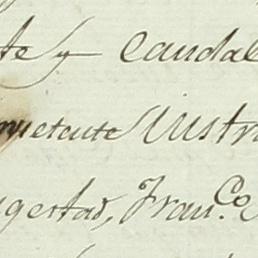 te y Caudal
mpetente Nustra
gestad, Fran.Co